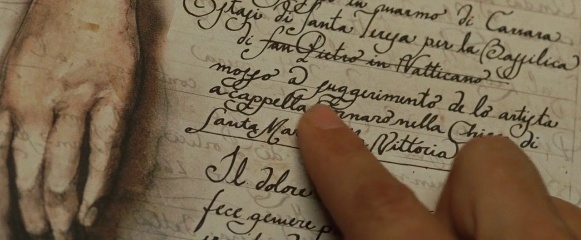 in marmo di Carrara
Estasi di Santa Teresa per la Basilica
di San Pietro in Vatticano
mosso à suggerimento de lo artista
a cappella Cornaro nella Chiesa di
Santa Mar Vittoria
Il dolore
fece gemere p